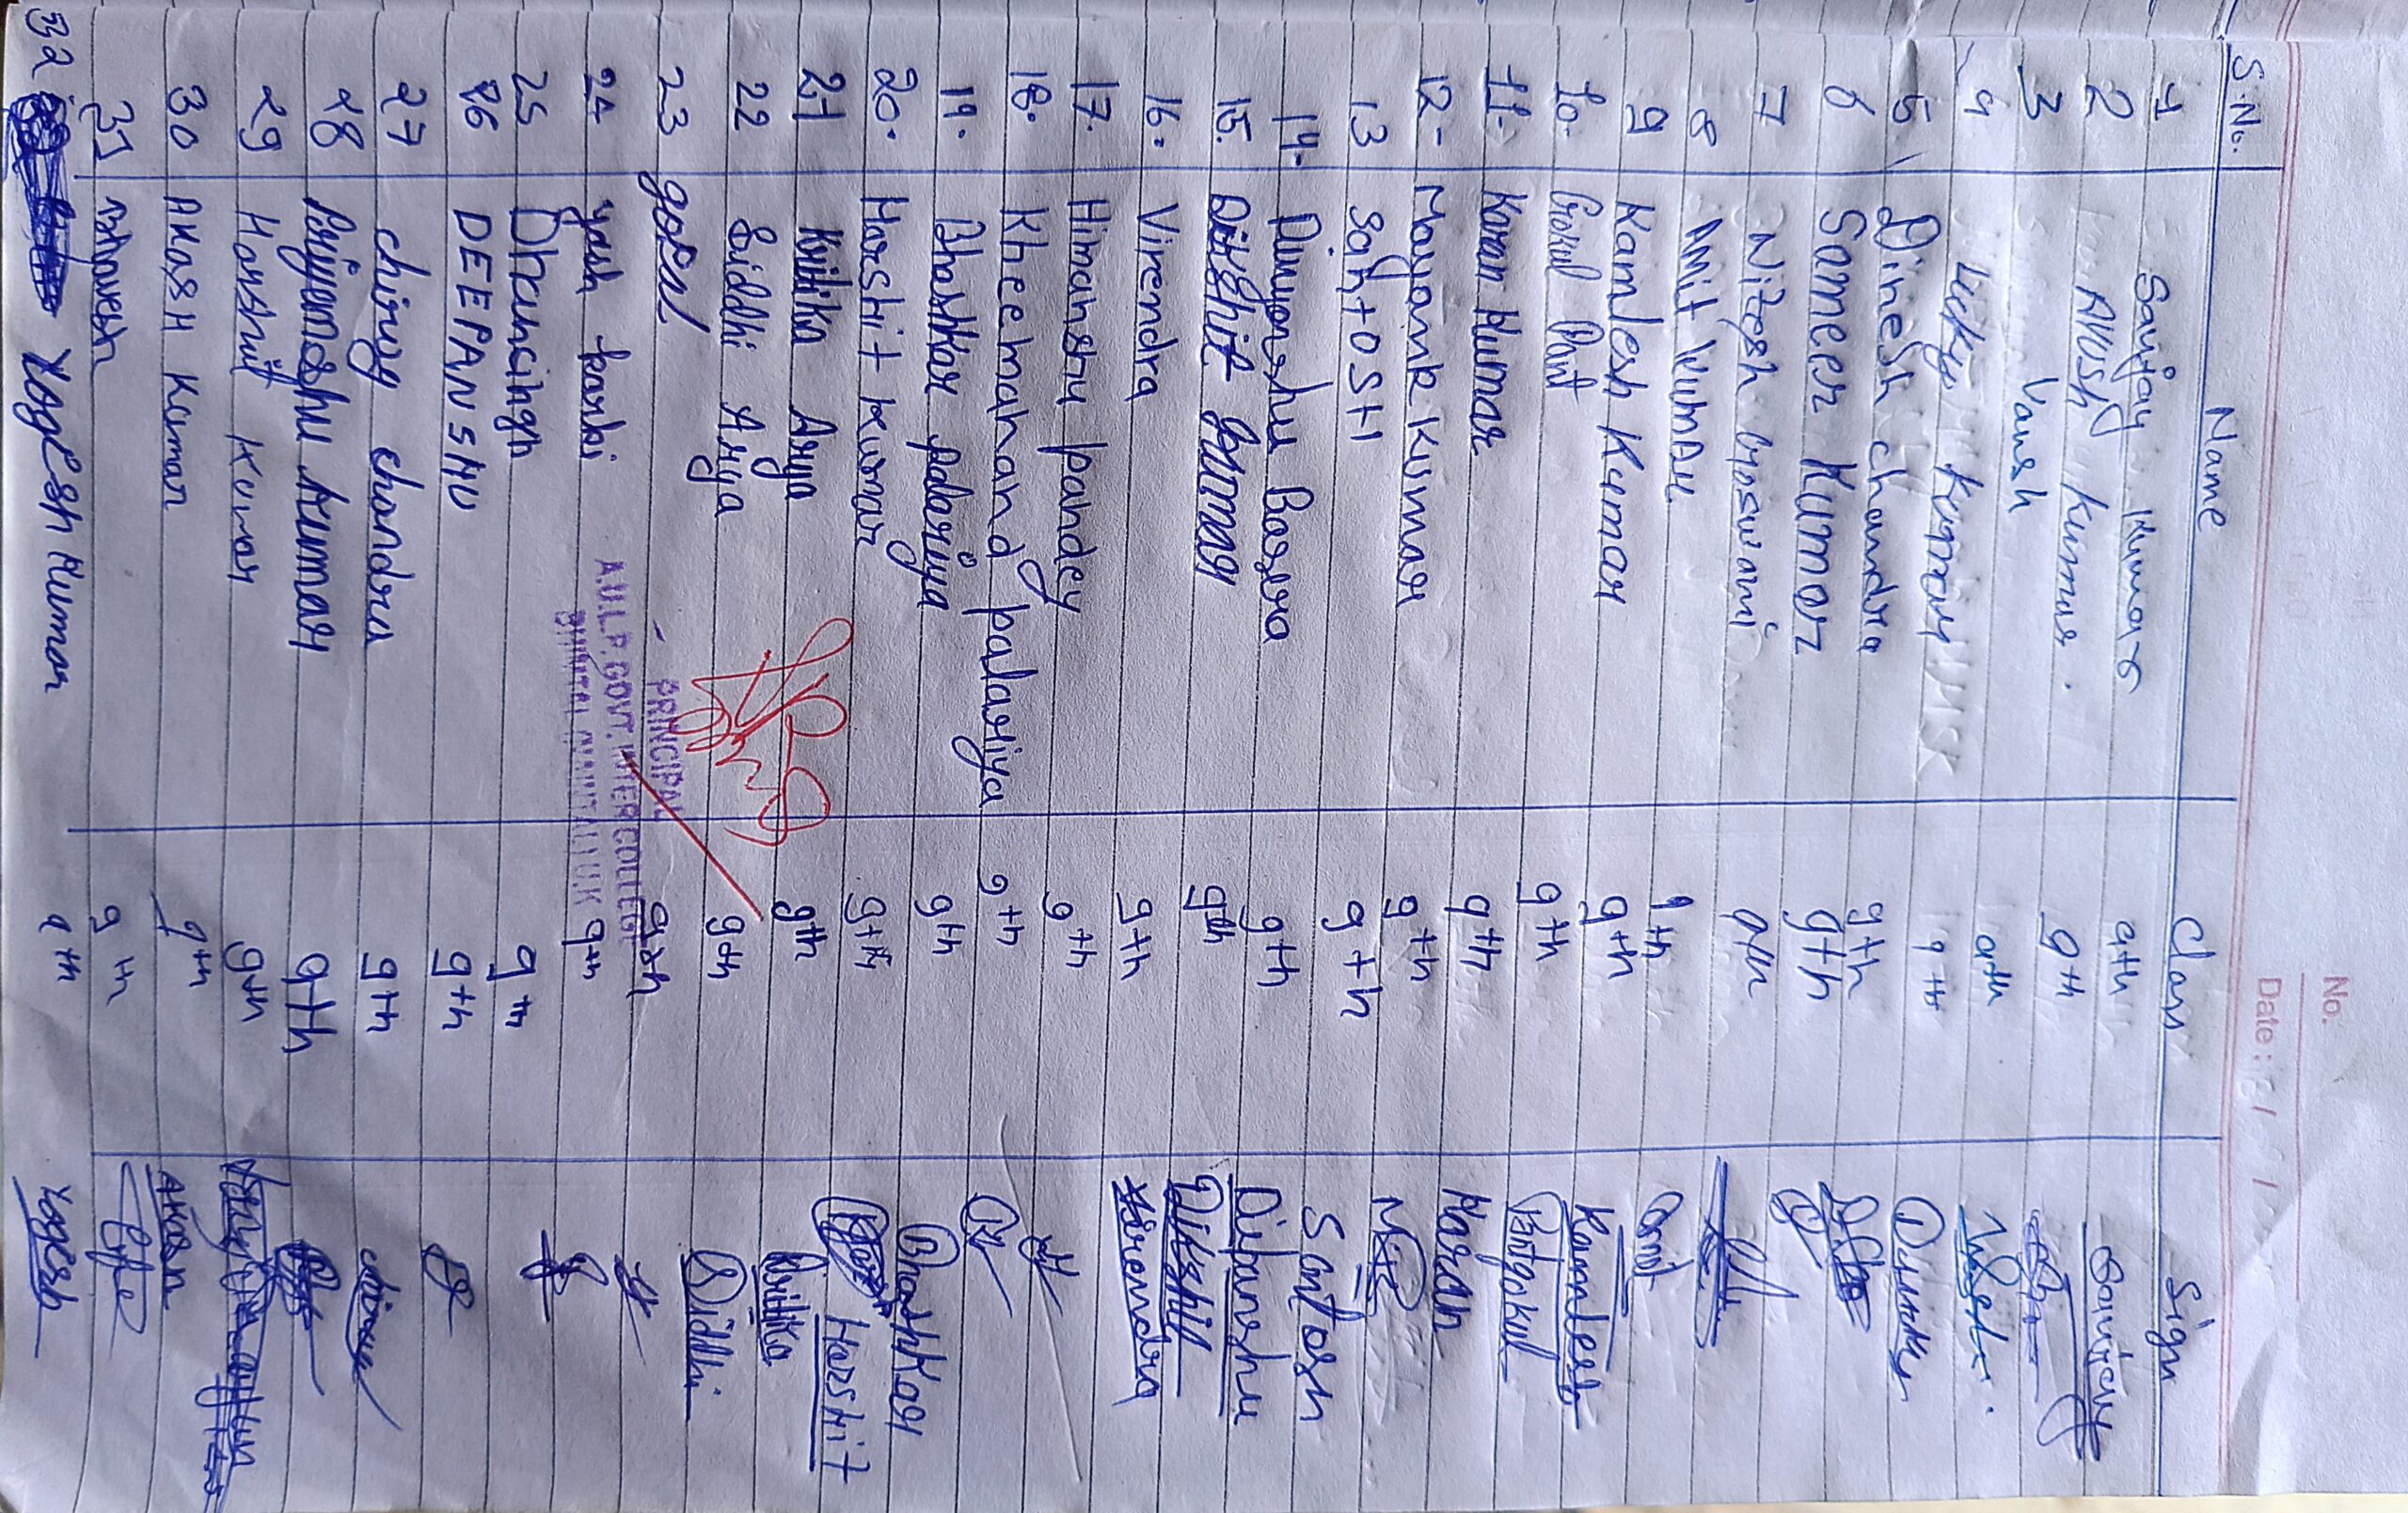 No.
Date:
S.No. Name Class Sign
1 Sanjay Kumar 9th Sanjay
2 AYUSH Kumar. 9th
3 Vansh 9th
4 Lucky Kumar 9th
5 Dinesh chandra 9th
6 Sameer Kumar 9th
7 Nitesh Goswami 9th
8 Amit Kumar 9th Amit
9 Kamlesh Kumar 9th Kamlesh
10. Gokul Pant 9th
11. Karan Kumar 9th Karan
12- Mayank Kumar 9th
13 SantOSH 9th Santosh
14. Dipanshu 9th Dipanshu
15. Dikshit Kumar 9th Dikshit
16. Virendra 9th Virendra
17. Himanshu pandey 9th
18. Kheemanand palariya 9th
19. Bhashkar padariya 9th Bhashkar
20. Harshit Kumar 9th Harshit
21 Kritika Arya 9th Kritika
22 Siddhi Arya 9th Siddhi
23 gopal 9th
PRINCIPAL
24 yash karki 9th
A.U.L.P. GOVT. INTER COLLEGE
25 Dhansingh 9th
26 DEEPANSHU 9th
27 chirag chandra 9th
28 Priyanshu Kumar 9th
29 Harshit Kumar 9th
30 AKASH Kumar 9th AKASH
31 9th
32 YogESH Kumar 9th Yogesh